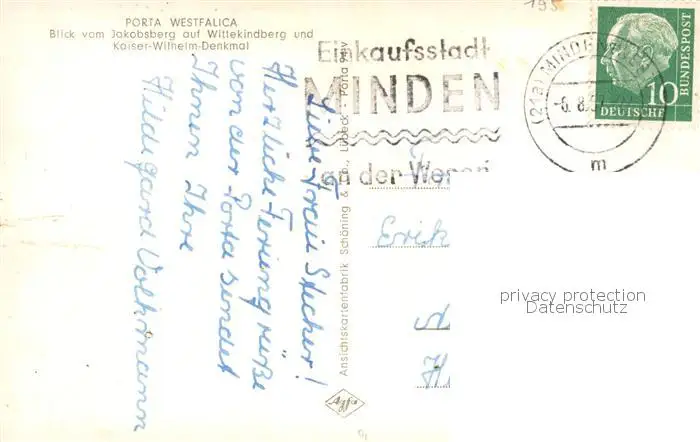 195
PORTA WESTFALICA
Blick vom Jakobsberg auf Wittekindberg und
Kaiser-Wilhelm-Denkmal
Einkaufsstadt
MINDEN
an der Weser
(21a) MINDEN
-6.8.5
m
BUNDESPOST
10
DEUTSCHE
Liebe Frau Stecher!
Herzliche Feriengrüße
von der Porta sendet
Ihnen Ihre
Hildegard Volkmann
Ansichtskartenfabrik Schöning & Co., Lübeck · Porta 94 v
Agfa
Erik
H
privacy protection
Datenschutz